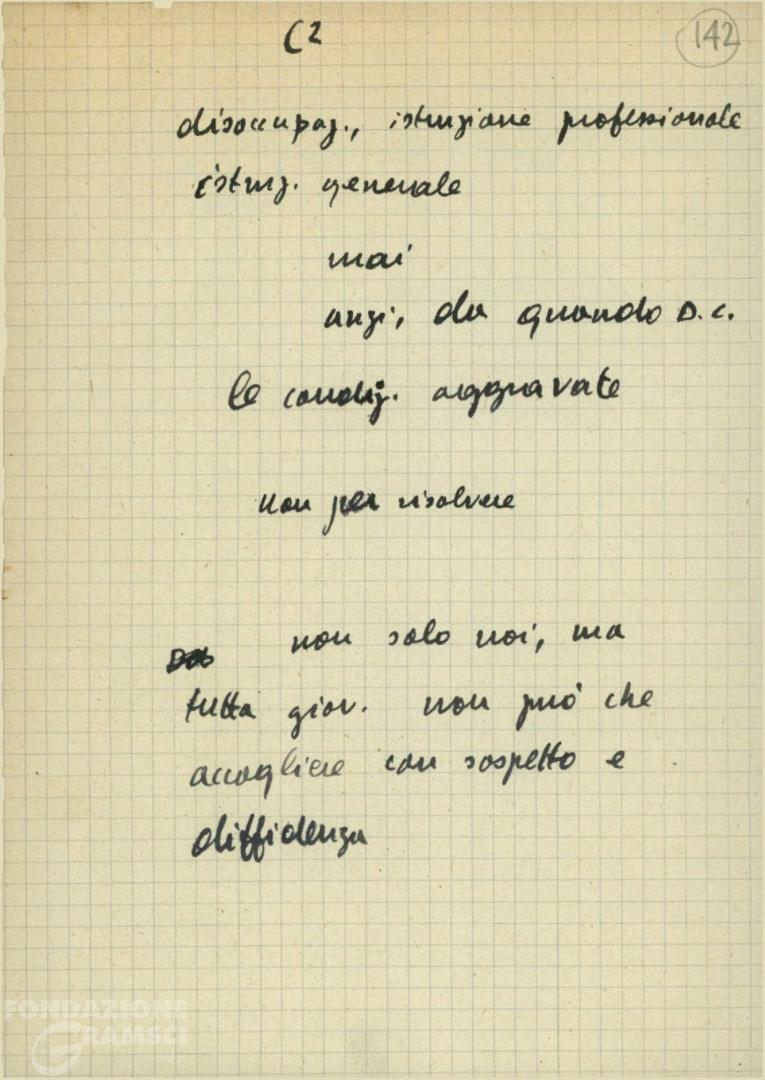 C2
142
disoccupaz., istruzione professionale
istruz. generale
mai
anzi, da quando D.C.
le condiz. aggravate
non per risolvere
non solo noi, ma
tutta giov. non può che
accogliere con sospetto e
diffidenza
FONDAZIONE
GRAMSCI